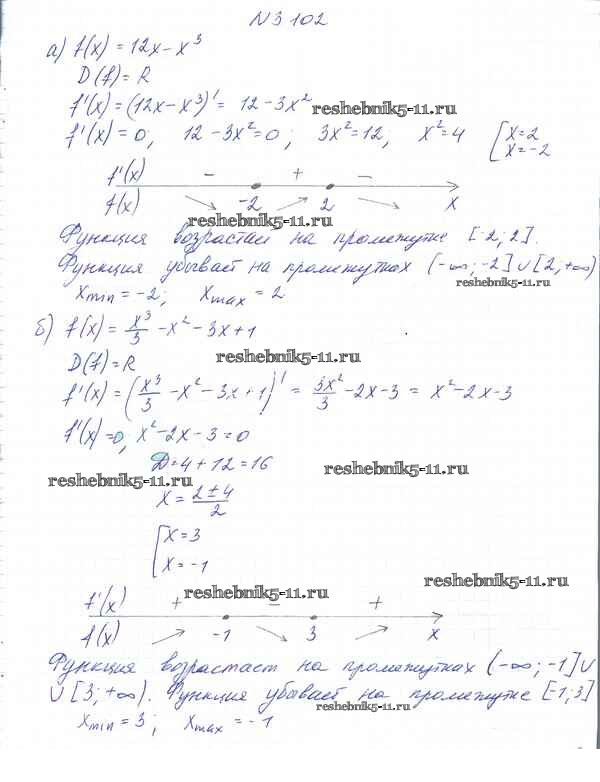 N 3 102
а) f(x) = 12x - x³
D(f) = R
f'(x) = (12x - x³)' = 12 - 3x²
reshebnik5-11.ru
f'(x) = 0; 12 - 3x² = 0; 3x² = 12, x² = 4 [x = 2
x = -2
f'(x) - + -
f(x) -2 2 x
reshebnik5-11.ru
Функция возрастает на промежутке [-2; 2].
Функция убывает на промежутках (-∞; -2] ∪ [2, +∞)
reshebnik5-11.ru
x min = -2; x max = 2
б) f(x) = x³/3 - x² - 3x + 1
reshebnik5-11.ru
D(f) = R
f'(x) = (x³/3 - x² - 3x + 1)' = 3x²/3 - 2x - 3 = x² - 2x - 3
f'(x) = 0, x² - 2x - 3 = 0
D = 4 + 12 = 16
reshebnik5-11.ru reshebnik5-11.ru
x = (2 ± 4)/2
[x = 3
x = -1
reshebnik5-11.ru
reshebnik5-11.ru
f'(x) + - +
f(x) -1 3 x
Функция возрастает на промежутках (-∞; -1] ∪
∪ [3; +∞). Функция убывает на промежутке [-1; 3]
reshebnik5-11.ru
x min = 3; x max = -1